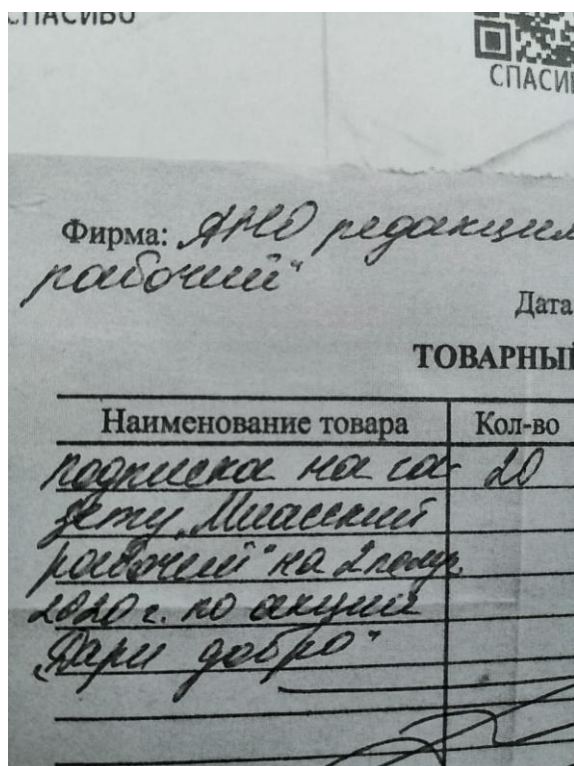 СПАСИБО
СПАСИ
Фирма: АНО редакция
рабочий"
Дата
ТОВАРНЫЙ
Наименование товара Кол-во
подписка на га- 20
зету „Миасский
рабочий" на 2 полуг.
2020 г. по акции
„Дари добро"